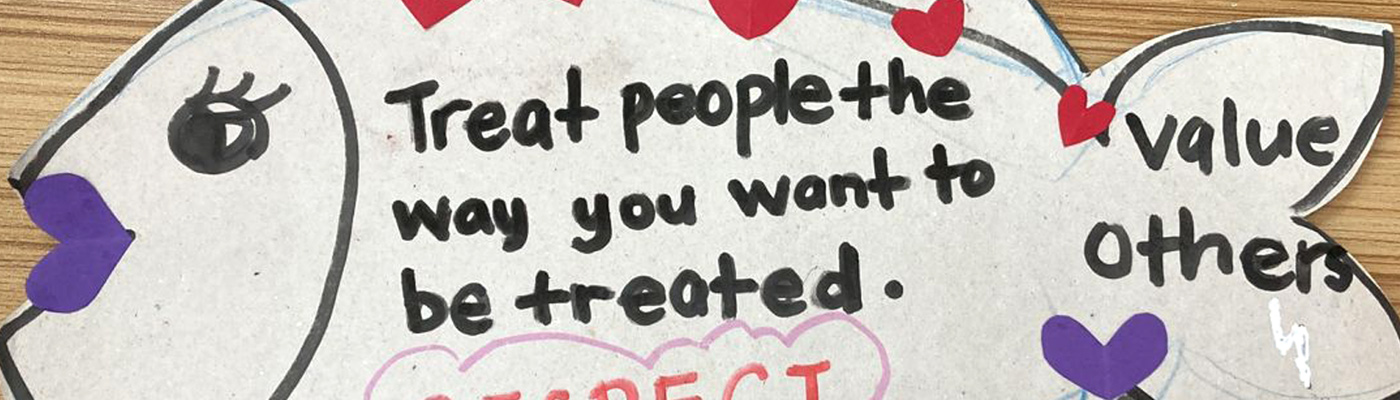 Treat people the
way you want to
be treated.
RESPECT
value
others